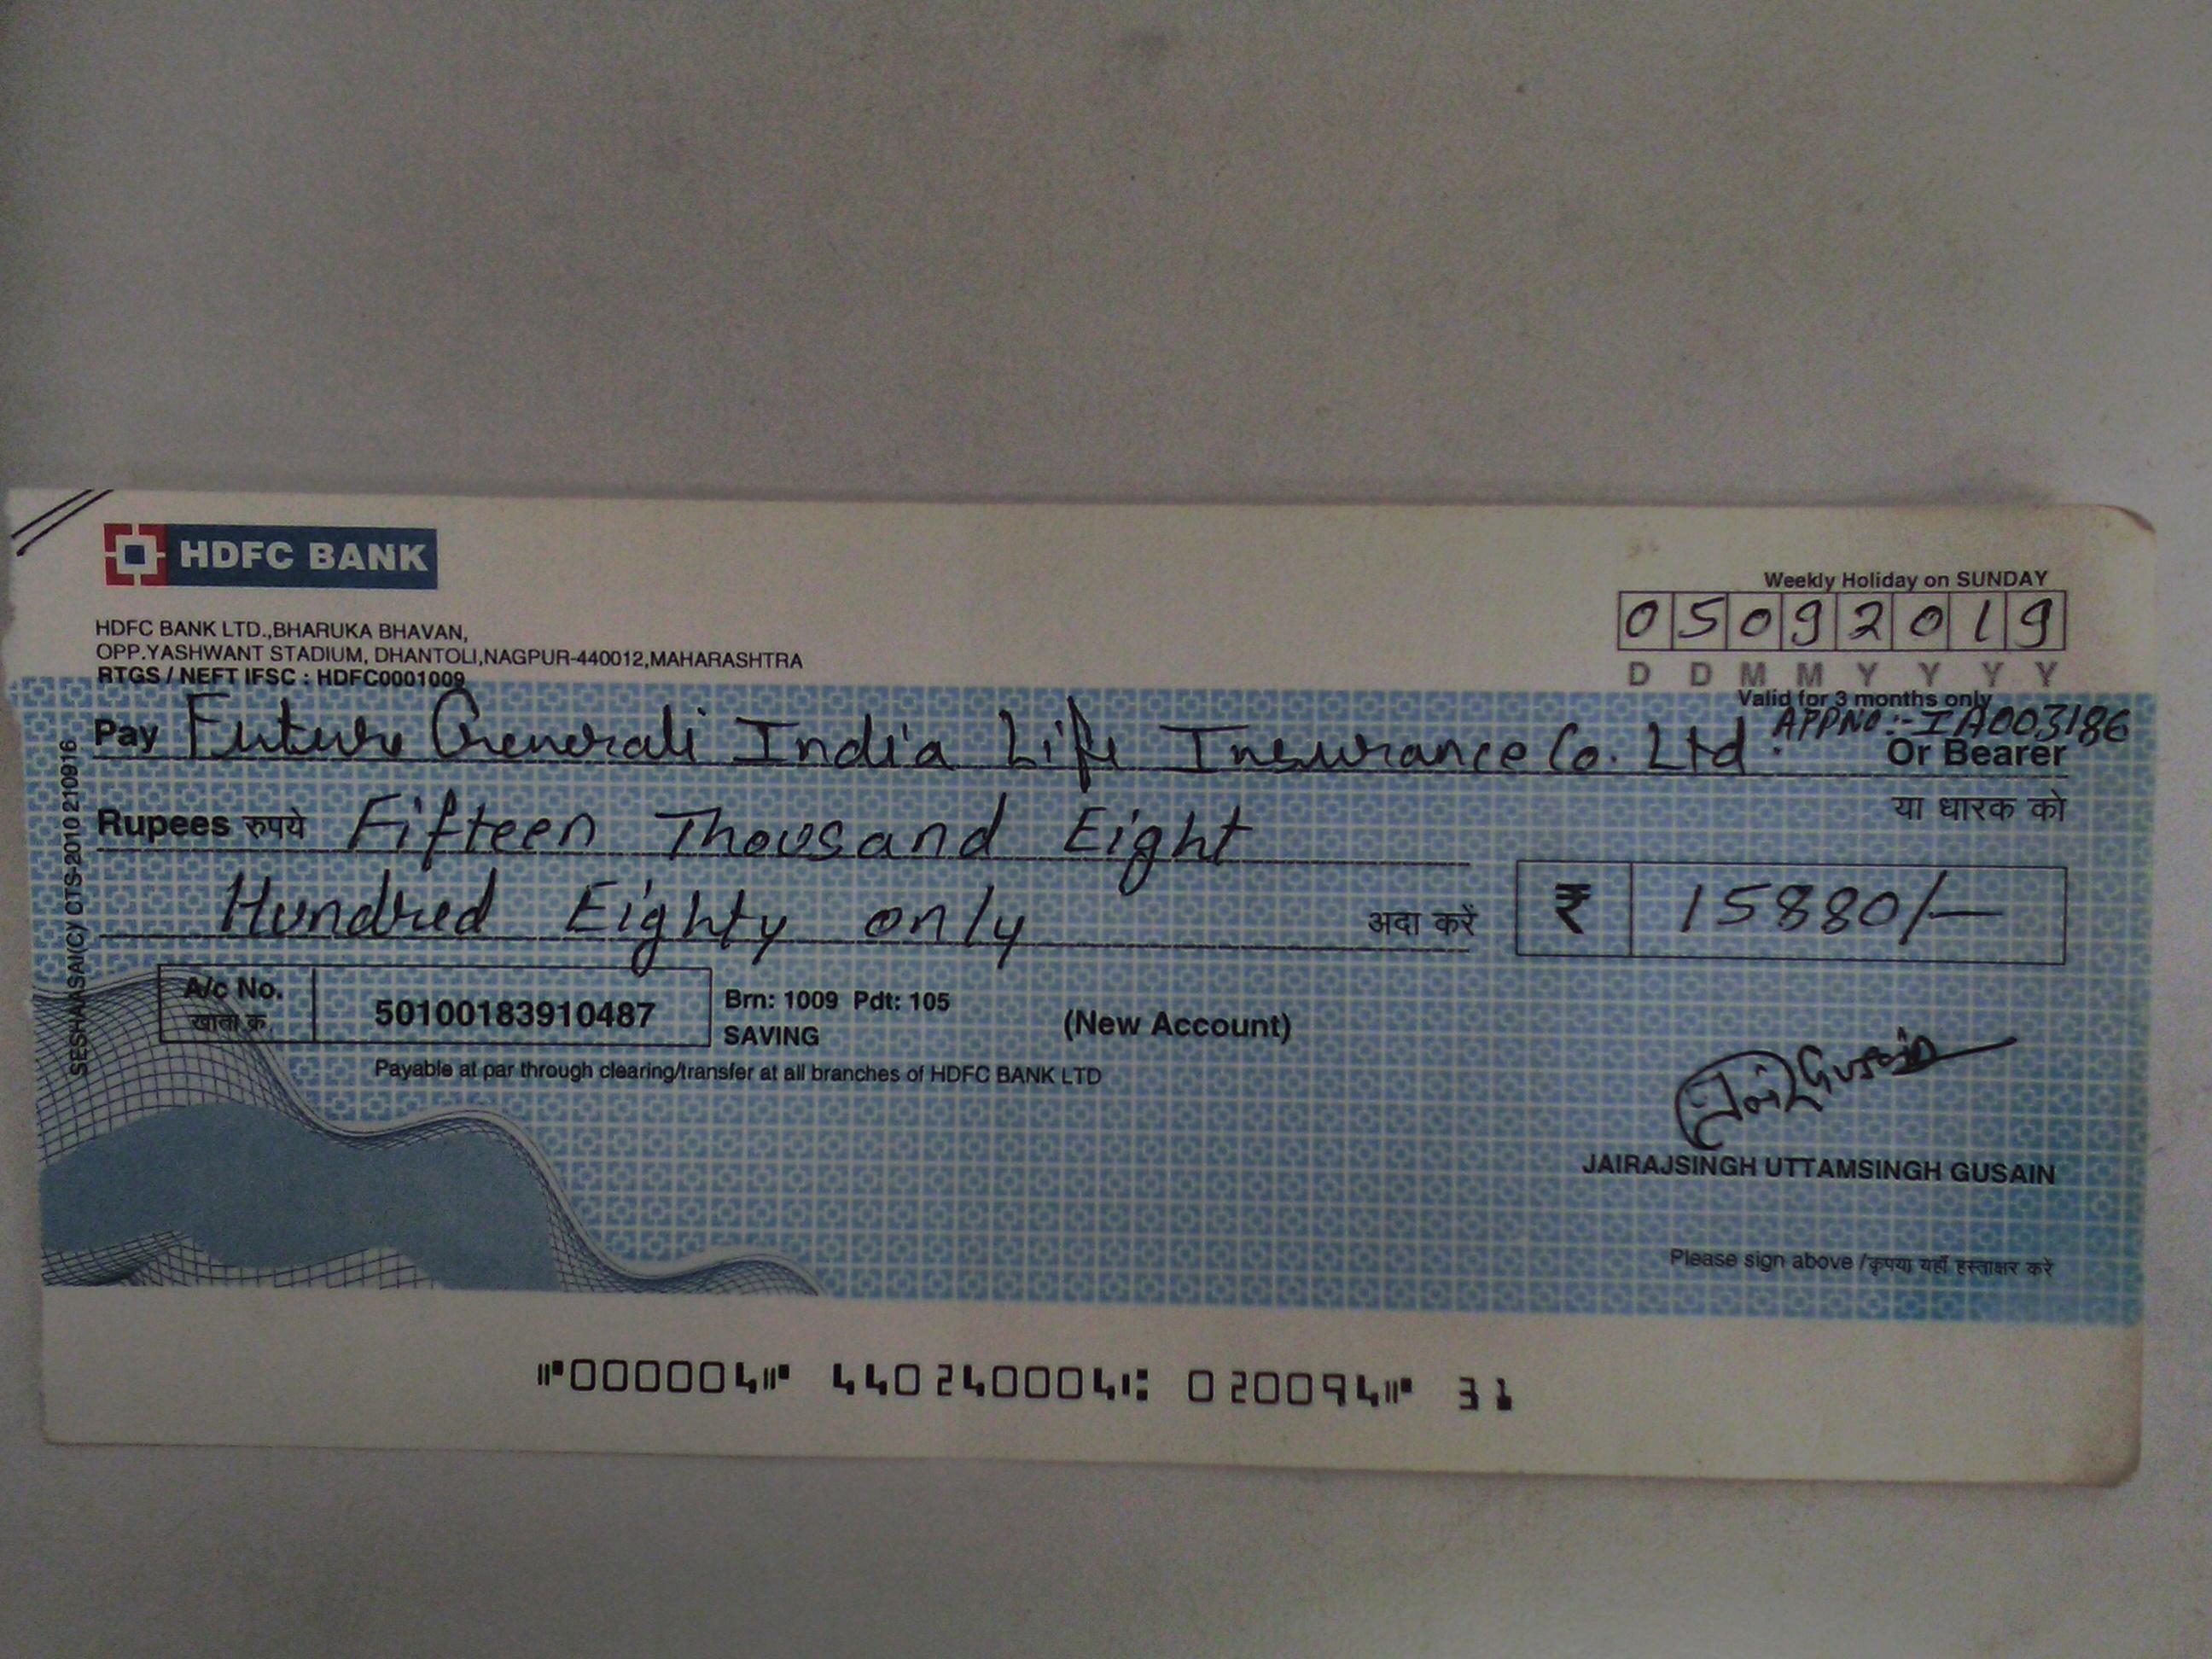 HDFC BANK
HDFC BANK LTD.,BHARUKA BHAVAN,
OPP.YASHWANT STADIUM, DHANTOLI,NAGPUR-440012,MAHARASHTRA
RTGS / NEFT IFSC : HDFC0001009
Weekly Holiday on SUNDAY
05092019
D D M M Y Y Y Y
Valid for 3 months only
APPNO:- IA003186
Pay Future Generali India Life Insurance Co. Ltd. Or Bearer
या धारक को
Rupees रुपये Fifteen Thousand Eight
Hundred Eighty only अदा करें ₹ 15880/-
A/c No. 50100183910487
खाता क्र.
Brn: 1009 Pdt: 105
SAVING
(New Account)
Payable at par through clearing/transfer at all branches of HDFC BANK LTD
Jai Gusain
JAIRAJSINGH UTTAMSINGH GUSAIN
Please sign above / कृपया यहाँ हस्ताक्षर करें
SESHAASAI(C) CTS-2010 210916
⑈000004⑈ 440240004⑆ 020094⑈ 31